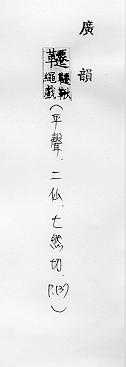 廣韻
韆韆鞦繩戲(平聲、二仙、七然切、P.137)